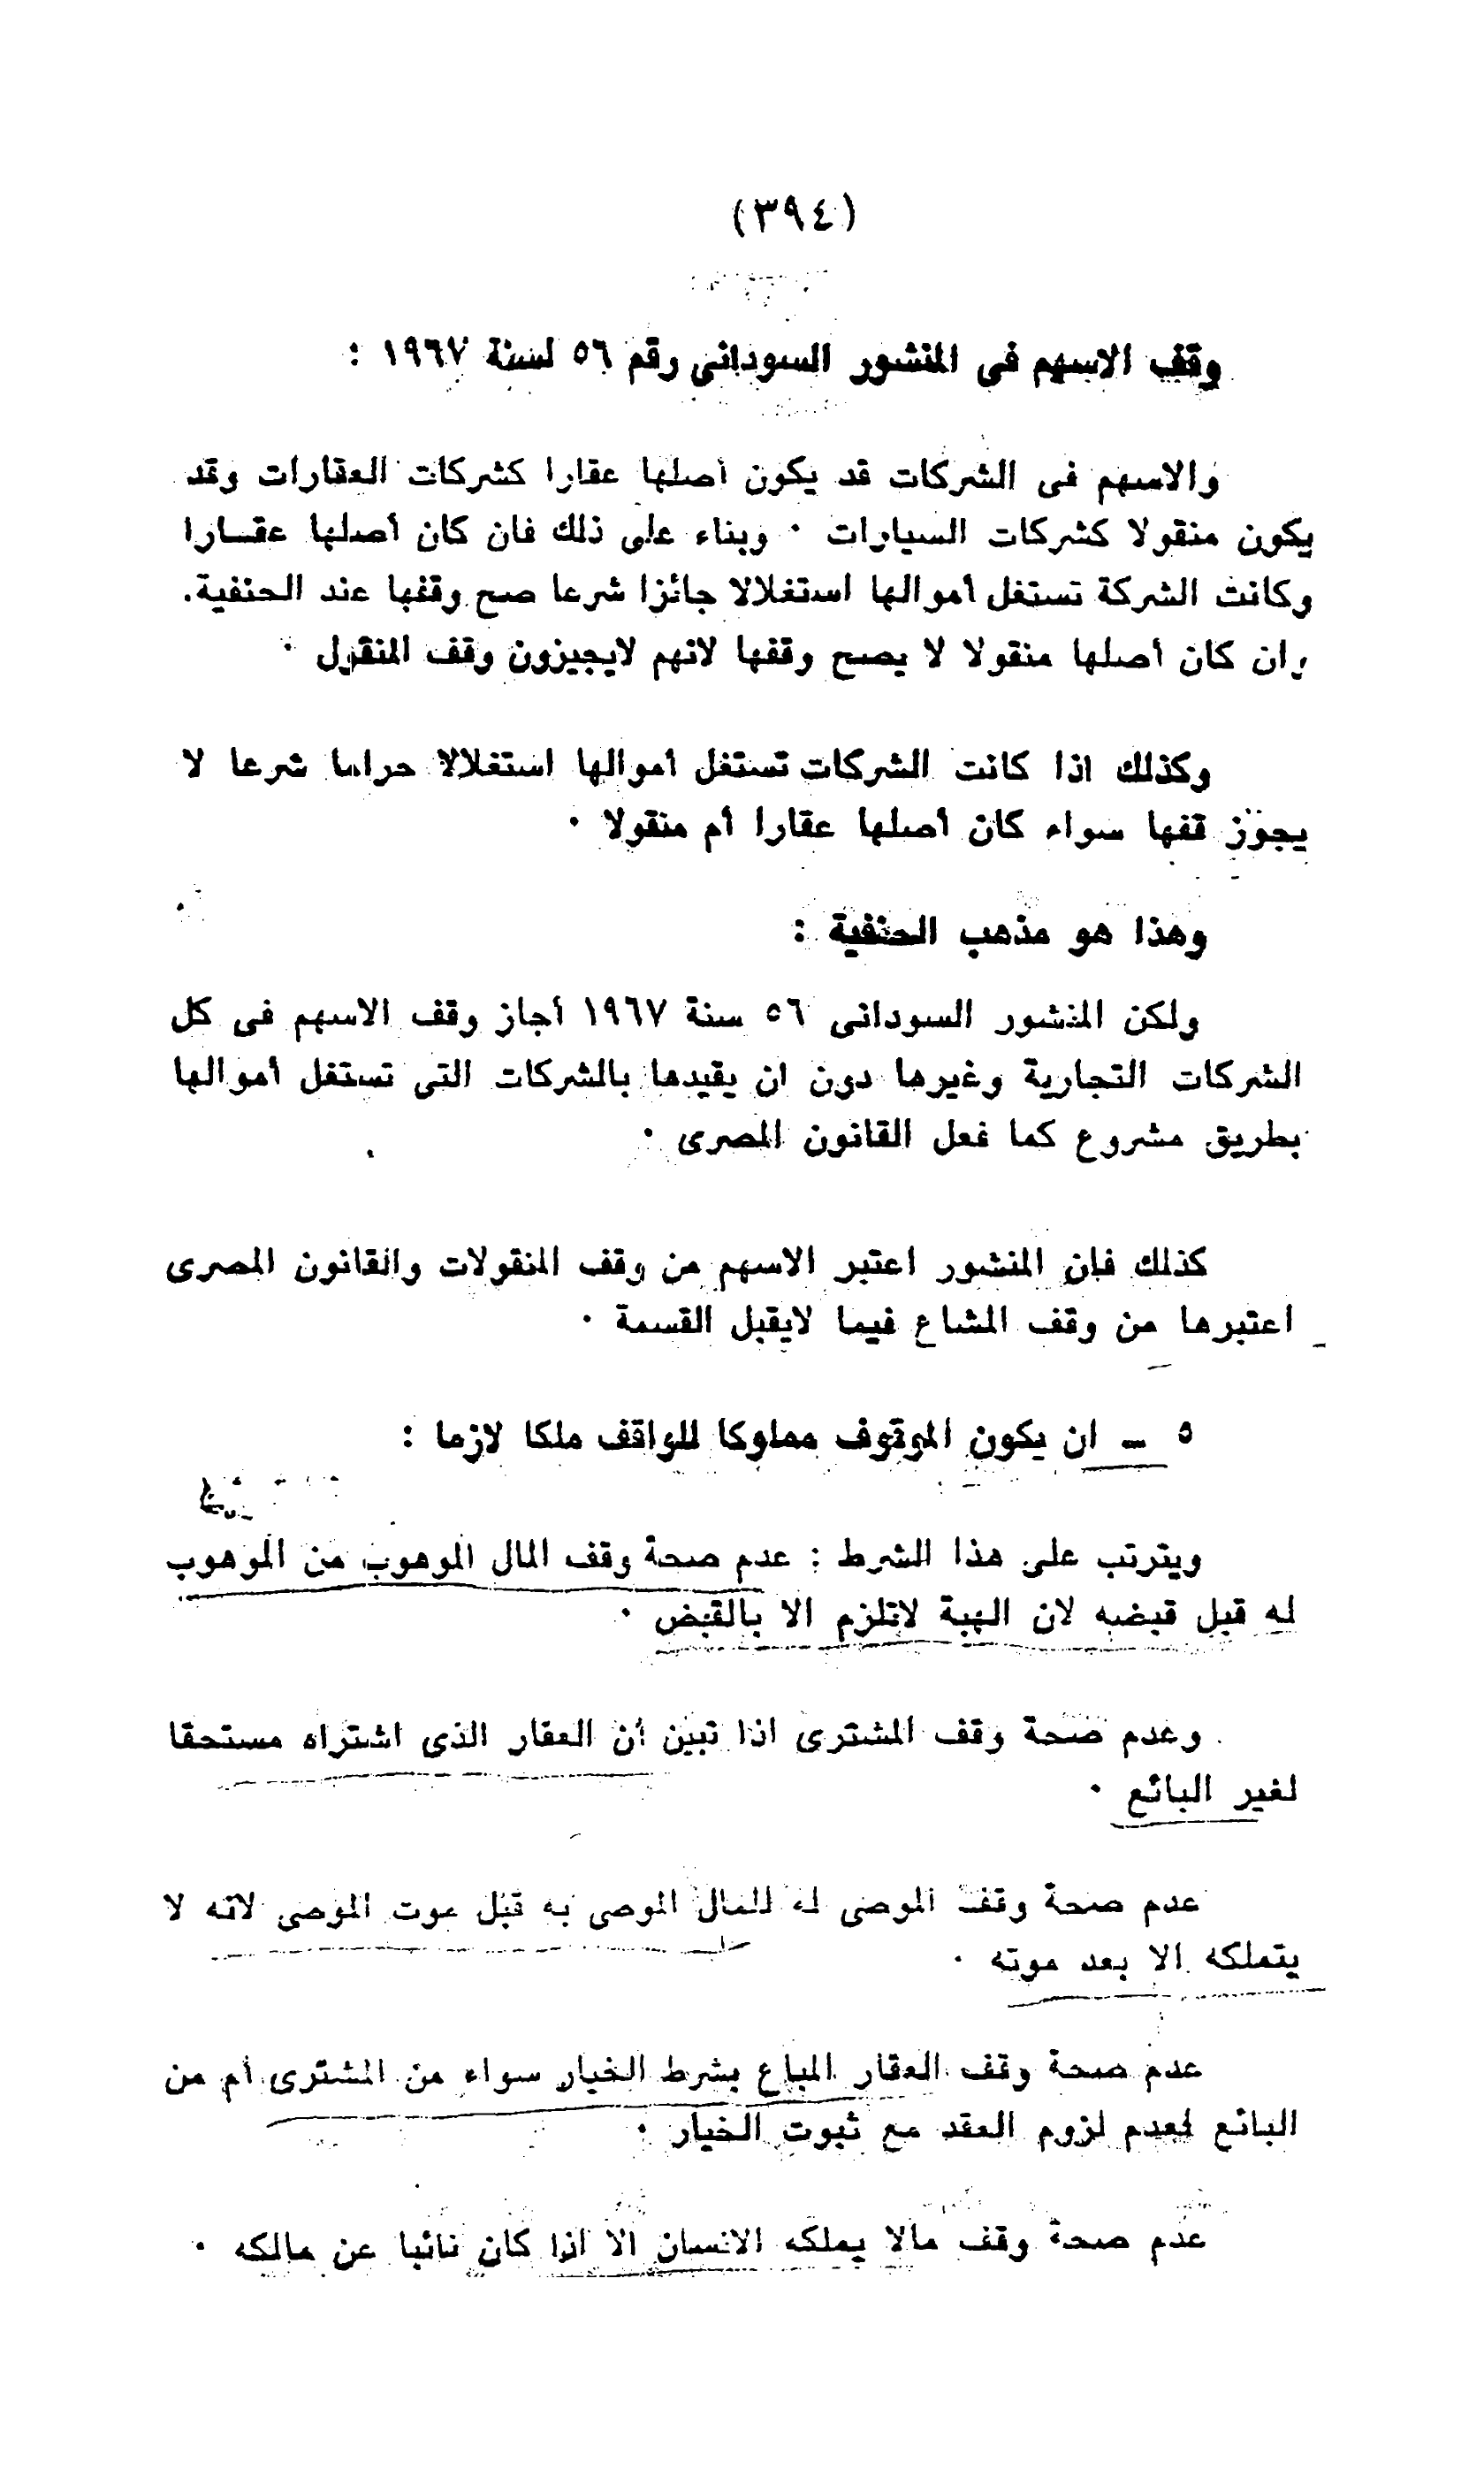 (٣٩٤)
وقف الاسهم فى المنشور السودانى رقم ٥٦ لسنة ١٩٦٧ :
والاسهم فى الشركات قد يكون أصلها عقارا كشركات العقارات وقد
يكون منقولا كشركات السيارات ٠ وبناء على ذلك فان كان أصلها عقـارا
وكانت الشركة تستغل أموالها استغلالا جائزا شرعا صح وقفها عند الحنفية.
وان كان أصلها منقولا لا يصح وقفها لانهم لايجيزون وقف المنقول ٠
وكذلك اذا كانت الشركات تستغل أموالها استغلالا حراما شرعا لا
يجوز قفها سواء كان أصلها عقارا أم منقولا ٠
وهذا هو مذهب الحنفية :
ولكن المنشور السودانى ٥٦ سنة ١٩٦٧ أجاز وقف الاسهم فى كل
الشركات التجارية وغيرها دون ان يقيدها بالشركات التى تستغل أموالها
بطريق مشروع كما فعل القانون المصرى ٠
كذلك فإن المنشور اعتبر الاسهم من وقف المنقولات والقانون المصرى
اعتبرها من وقف المشاع فيما لايقبل القسمة ٠
٥ ـ ان يكون الموقوف مملوكا للواقف ملكا لازما :
ويترتب على هذا الشرط : عدم صحة وقف المال الموهوب من الموهوب
له قبل قبضه لان الهبة لاتلزم الا بالقبض ٠
وعدم صحة وقف المشترى اذا تبين أن العقار الذى اشتراه مستحقا
لغير البائع ٠
عدم صحة وقف الموصى له للمال الموصى به قبل موت الموصى لانه لا
يتملكه الا بعد موته ٠
عدم صحة وقف العقار المباع بشرط الخيار سواء من المشترى أم من
البائع لعدم لزوم العقد مع ثبوت الخيار ٠
عدم صحة وقف مالا يملكه الانسان الا اذا كان نائبا عن مالكه ٠